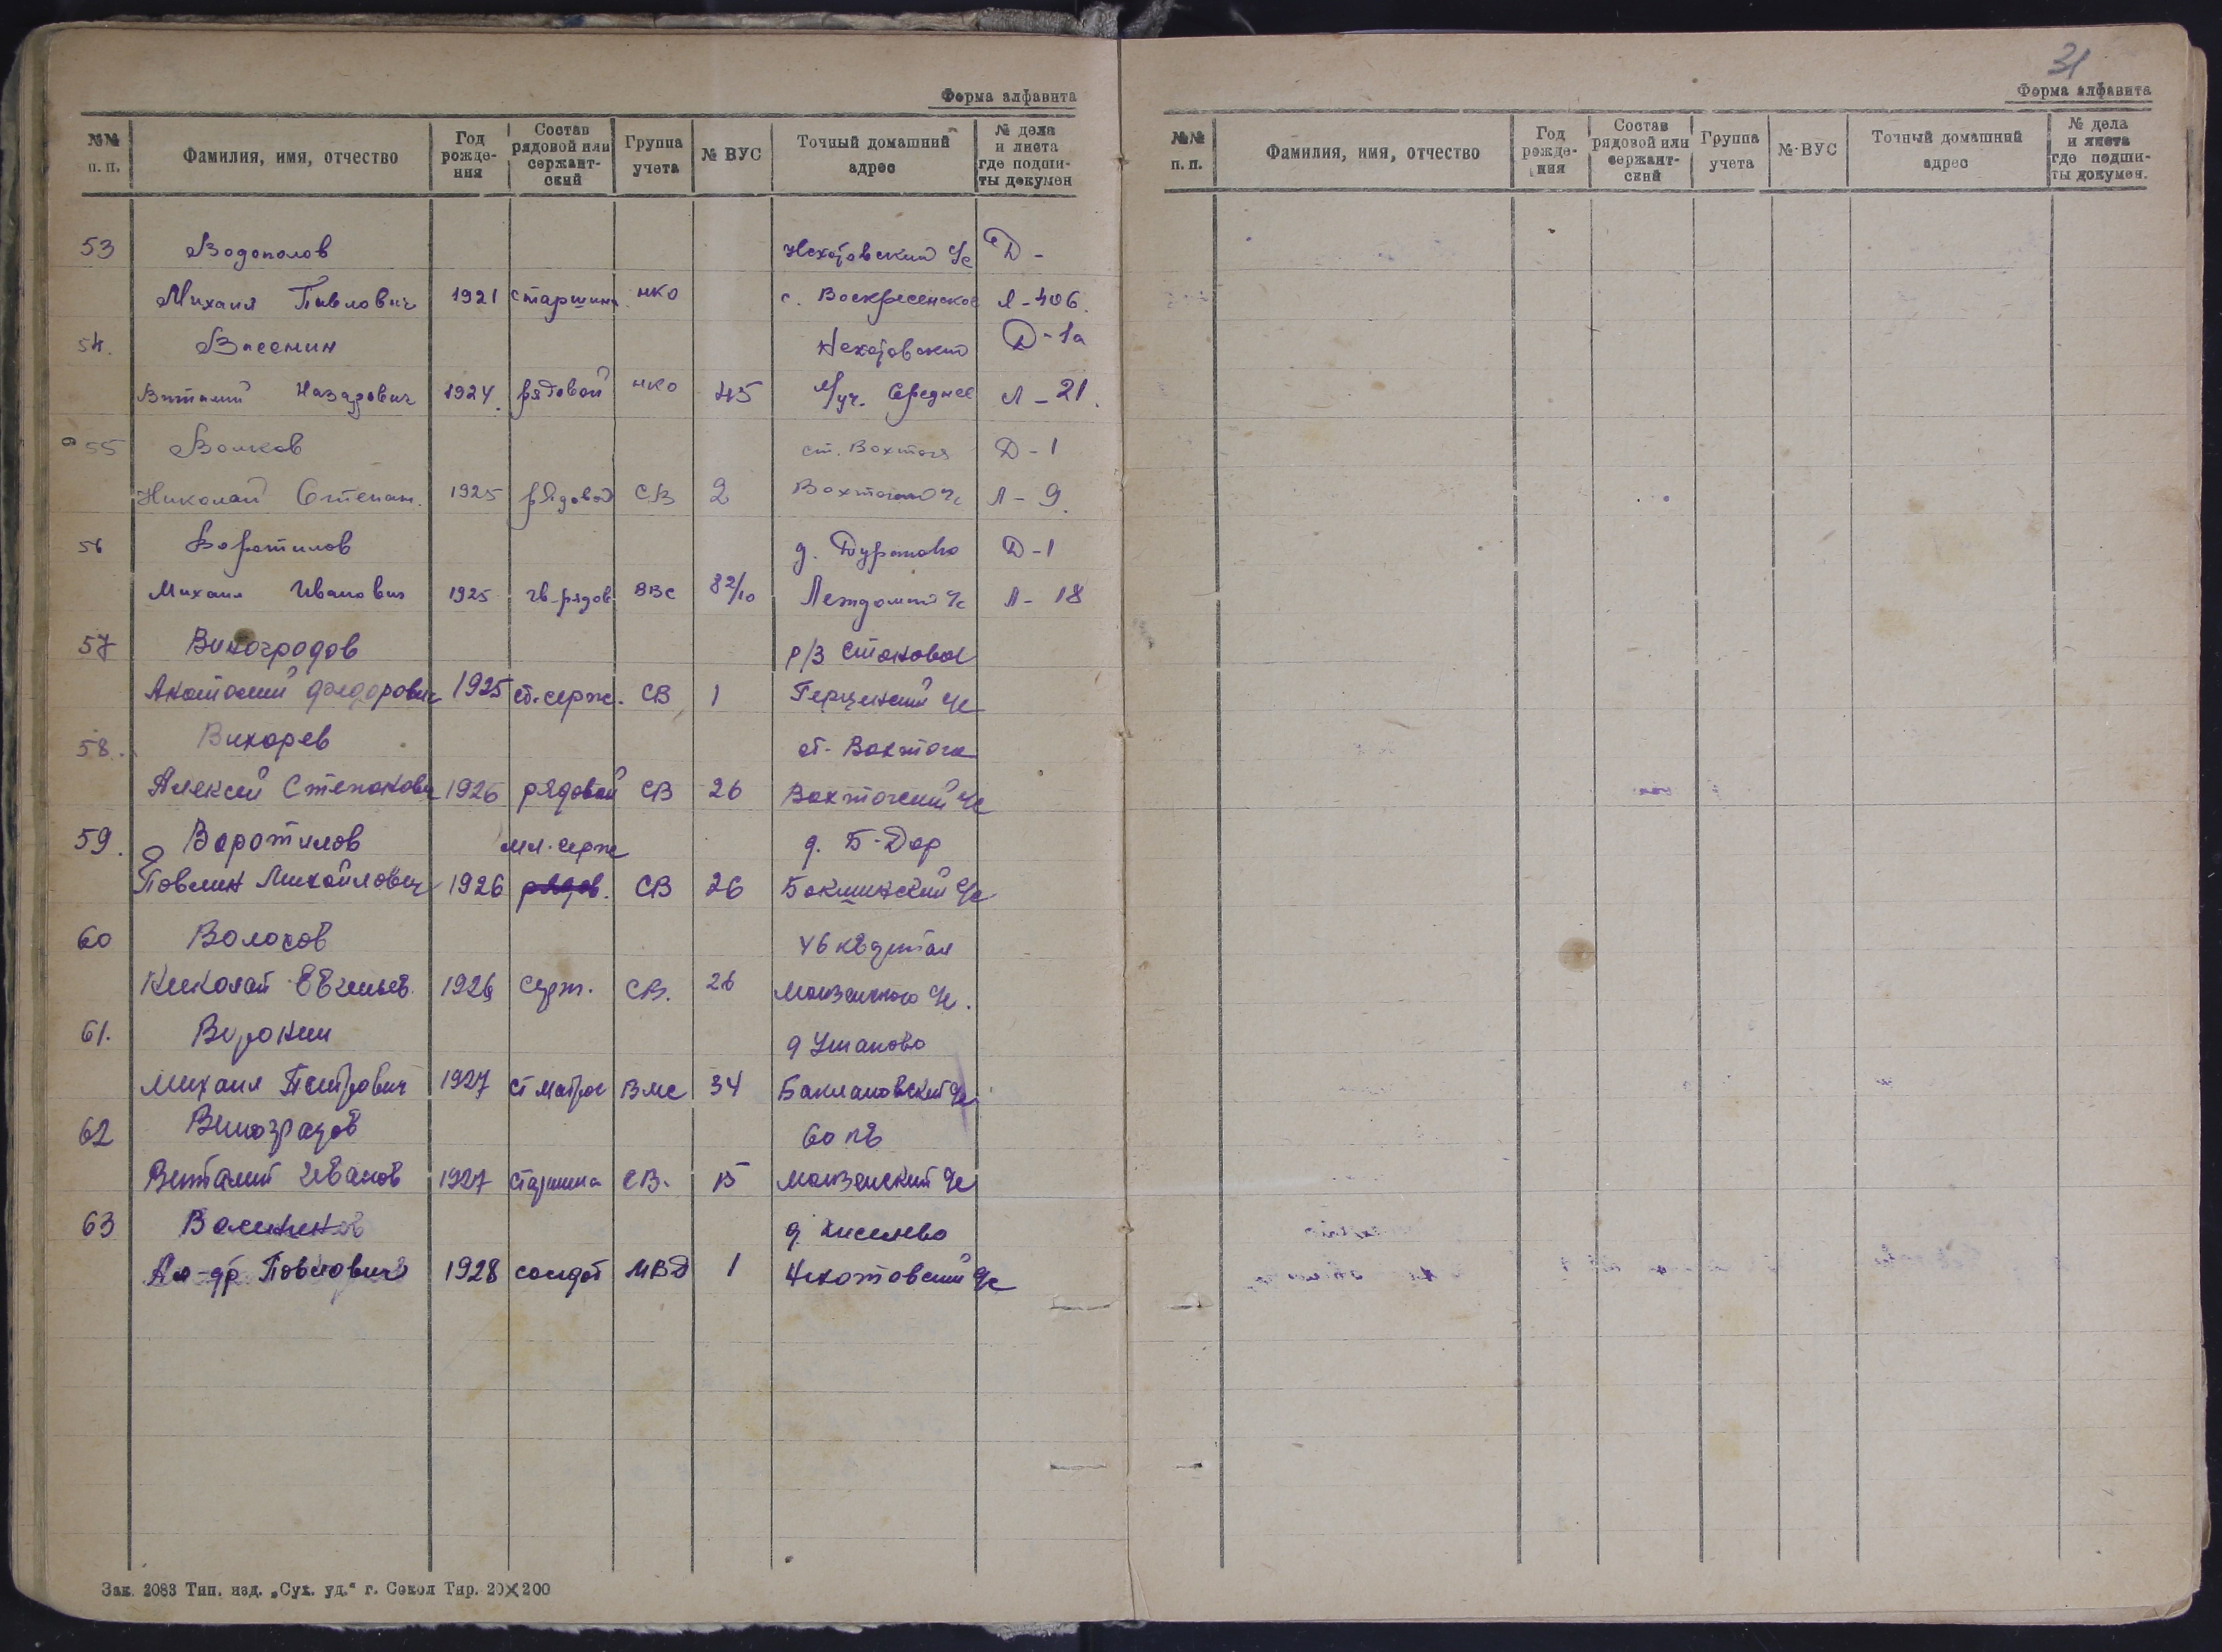 Форма алфавита
№№ п. п. Фамилия, имя, отчество Год рожде- ния Состав рядовой или сержант- ский Группа учета № ВУС Точный домашний адрес № дела и листа где подши- ты докумен
53 Водополов Нехотовский с/с Д -
Михаил Павлович 1921 старшина НКО с. Воскресенское Л-406.
54. Васенин Нехотовский Д-1а
Виталий Назарович 1924. рядовой НКО 45 м/уч. Среднее Л-21.
55 Волков ст. Вохтога Д-1
Николай Степан. 1925 рядовой СВ 2 Вохтогский с/с Л-9.
56 Воротилов д. Дураково Д-1
Михаил Иванович 1925 гв. рядов ВВС 82/10 Леждомский с/с Л-18
57 Виноградов р/з Стоковая
Анатолий Федорович 1925 ст. серж. СВ 1 Герцинский с/с
58. Вихорев ст. Вохтога
Алексей Степанович 1926 рядовой СВ 26 Вохтогский с/с
59. Воротилов мл. серж д. Б-Дор
Павлин Михайлович 1926 рядов. СВ 26 Бокшинский с/с
60 Волохов 46 квартал
Николай Евгеньев. 1926 серж. СВ. 26 Монзенского с/с.
61. Воронин д Ушаково
Михаил Петрович 1927 ст матрос ВМС 34 Баклановский с/с
62 Виноградов 60 кв
Виталий Иванов 1927 старшина СВ. 15 Монзенский с/с
63 д. Киселево
Ал-др Павлович 1928 солдат МВД 1 Нехотовский с/с
Зак. 2083 Тип. изд. „Сух. уд.“ г. Сокол Тир. 20X200
31
Форма алфавита
№№ п. п. Фамилия, имя, отчество Год рожде- ния Состав рядовой или сержант- ский Группа учета №-ВУС Точный домашний адрес № дела и листа где подши- ты докумен.